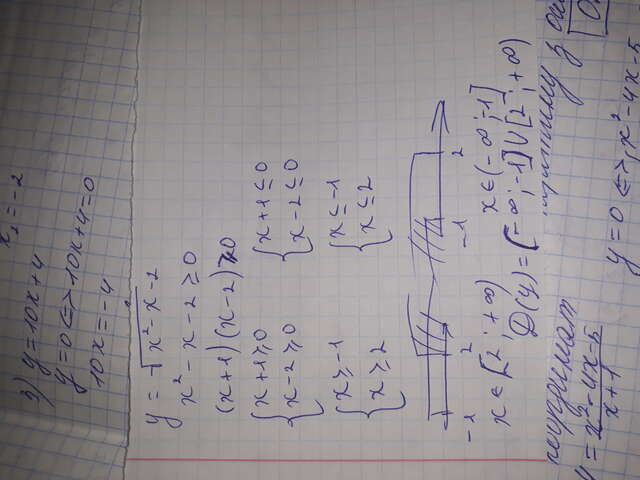 x₂ = -2
3) y = 10x + 4
y = 0 <=> 10x + 4 = 0
10x = -4
y = √x² - x - 2
x² - x - 2 ≥ 0
(x + 1)(x - 2) ≥ 0
{ x + 1 ≥ 0 { x + 1 ≤ 0
x - 2 ≥ 0 x - 2 ≤ 0
{ x ≥ -1 { x ≤ -1
x ≥ 2 x ≤ 2
-1 2 -1 2
x ∈ [2; +∞) x ∈ (-∞; -1]
D(y) = (-∞; -1] U [2; +∞)
координат з
y = x² - 4x - 5 / x + 1
y = 0 <=> x² - 4x - 5